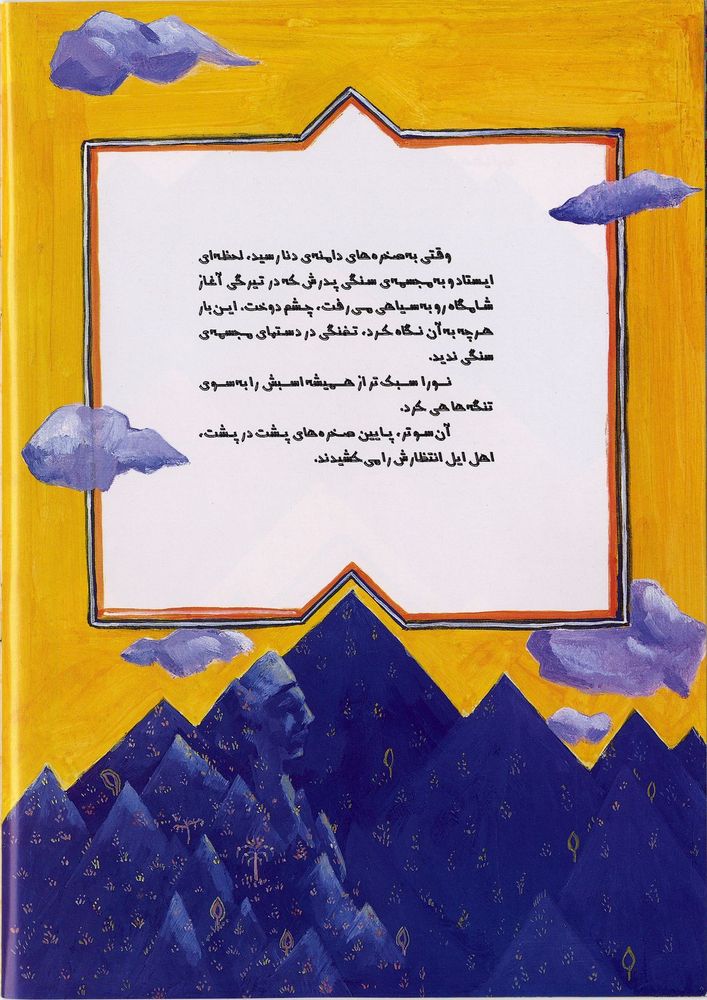 وقتی به صخره‌های دامنه‌ی دنا رسید، لحظه‌ای
ایستاد و به مجسمه‌ی سنگی پدرش که در تیرگی آغاز
شامگاه رو به سیاهی می‌رفت، چشم دوخت. این بار
هر چه به آن نگاه کرد، تفنگی در دستهای مجسمه‌ی
سنگی ندید.
نورا سبک‌تر از همیشه اسبش را به سوی
تنگه‌ها هی کرد.
آن سوتر، پایین صخره‌های پشت در پشت،
اهل ایل انتظارش را می‌کشیدند.